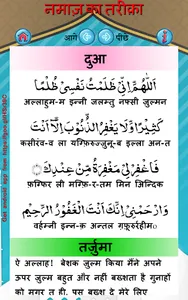 नमाज़ का तरीक़ा
आगे पीछे
दुआ
اَللّٰهُمَّ اِنِّیْ ظَلَمْتُ نَفْسِیْ ظُلْمًا
अल्लाहुम-म इन्नी ज़लम्तु नफ़्सी ज़ुल्मन
كَثِیْرًا وَّلَا یَغْفِرُ الذُّنُوْبَ اِلَّا اَنْتَ
कसीरंव-व ला यग़्फिरुज़्ज़ुनू-ब इल्ला अन-त
فَاغْفِرْلِیْ مَغْفِرَةً مِّنْ عِنْدِكَ
फ़ग़्फिर ली मग़्फि-र-तम मिन ज़िन्दिक
وَارْحَمْنِیْ اِنَّكَ اَنْتَ الْغَفُوْرُ الرَّحِیْمُ
वर्हम्नी इन्न-क अन्तल ग़फ़ूरुर्रहीम०
तर्जुमा
ऐ अल्लाह! बेशक ज़ुल्म किया मैंने अपने
ऊपर ज़ुल्म बहुत और नहीं बख़्शता है गुनाहों
को मगर तू ही, पस बख़्श दे मेरे लिए
Get android app from